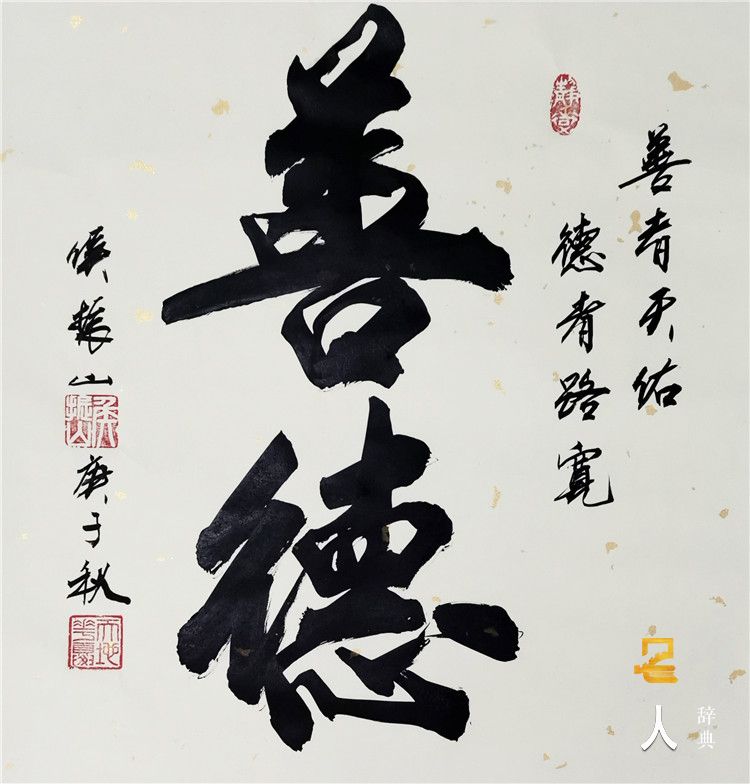 善者天佑
德者路寬
善德
侯振山
庚子秋
名人辞典